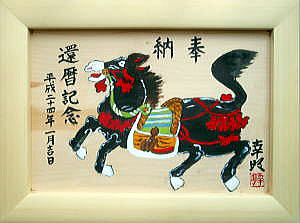 奉納
還暦記念
平成二十四年一月吉日